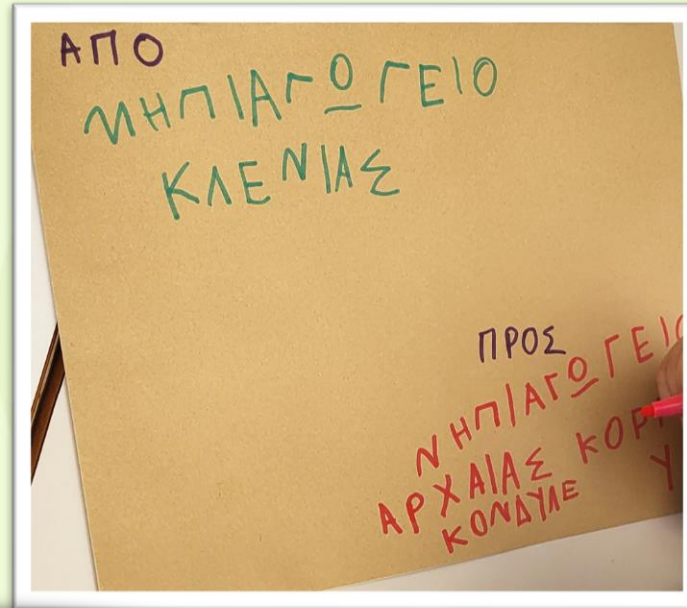 ΑΠΟ
ΝΗΠΙΑΓΩΓΕΙΟ
ΚΛΕΝΙΑΣ
ΠΡΟΣ
ΝΗΠΙΑΓΩΓΕΙΟ
ΑΡΧΑΙΑΣ
ΚΟΝΔΥΛΕ